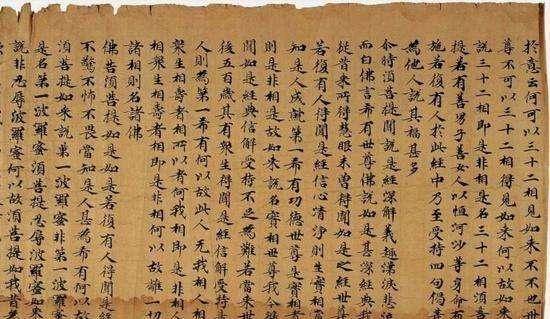 於意云何可以三十二相見如來不不也世
尊不可以三十二相得見如來何以故如來
說三十二相即是非相是名三十二相須菩
提若有善男子善女人以恒河沙等身命布
施若復有人於此經中乃至受持四句偈等
為他人說其福甚多
尒時須菩提聞說是經深解義趣涕淚悲泣
而白佛言希有世尊佛說如是甚深經典我
從昔來所得慧眼未曾得聞如是之經世尊
若復有人得聞是經信心清淨則生實相當
知是人成就第一希有功德世尊是實相者
則是非相是故如來說名實相世尊我今得
聞如是經典信解受持不足為難若當來世
後五百歲其有衆生得聞是經信解受持是
人則為第一希有何以故此人无我相人相
衆生相壽者相所以者何我相即是非相人
相衆生相壽者相即是非相何以故離一切
諸相則名諸佛
佛告須菩提如是如是若復有人得聞是經
不驚不怖不畏當知是人甚為希有何以故
須菩提如來說第一波羅蜜非第一波羅蜜
是名第一波羅蜜須菩提忍辱波羅蜜如來
說非忍辱波羅蜜何以故須菩提如我昔為